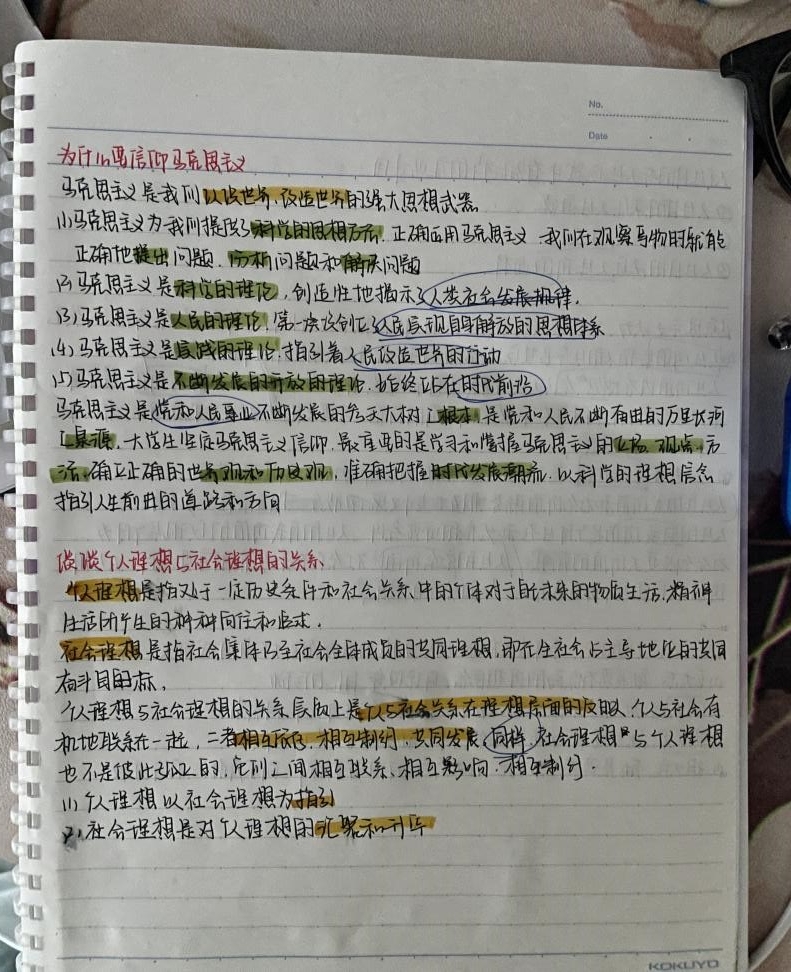 No.
Date
为什么要信仰马克思主义
马克思主义是我们认识世界、改造世界的强大思想武器
(1)马克思主义为我们提供了科学的思想方法,正确应用马克思主义,我们在观察事物时就能
正确地提出问题、分析问题和解决问题
(2)马克思主义是科学的理论,创造性地揭示了人类社会发展规律.
(3)马克思主义是人民的理论,第一次创立了人民实现自身解放的思想体系
(4)马克思主义是实践的理论,指引着人民改造世界的行动
(5)马克思主义是不断发展的开放的理论,始终站在时代前沿
马克思主义是党和人民事业不断发展的参天大树之根本,是党和人民不断奋进的万里长河
之泉源.大学生坚定马克思主义信仰,最重要的是学习和掌握马克思主义的立场、观点、方
法,确立正确的世界观和历史观,准确把握时代发展潮流,以科学的理想信念
指引人生前进的道路和方向
谈谈个人理想与社会理想的关系
个人理想是指处于一定历史条件和社会关系中的个体对于自己未来的物质生活、精神
生活所产生的种种向往和追求.
社会理想是指社会集体乃至社会全体成员的共同理想,即在全社会占主导地位的共同
奋斗目标.
个人理想与社会理想的关系实质上是个人与社会关系在理想层面的反映.个人与社会有
机地联系在一起,二者相互依存、相互制约、共同发展,同样,社会理想与个人理想
也不是彼此孤立的,它们之间相互联系、相互影响、相互制约.
(1)个人理想以社会理想为指引
(2)社会理想是对个人理想的汇聚和升华
KOKUYO